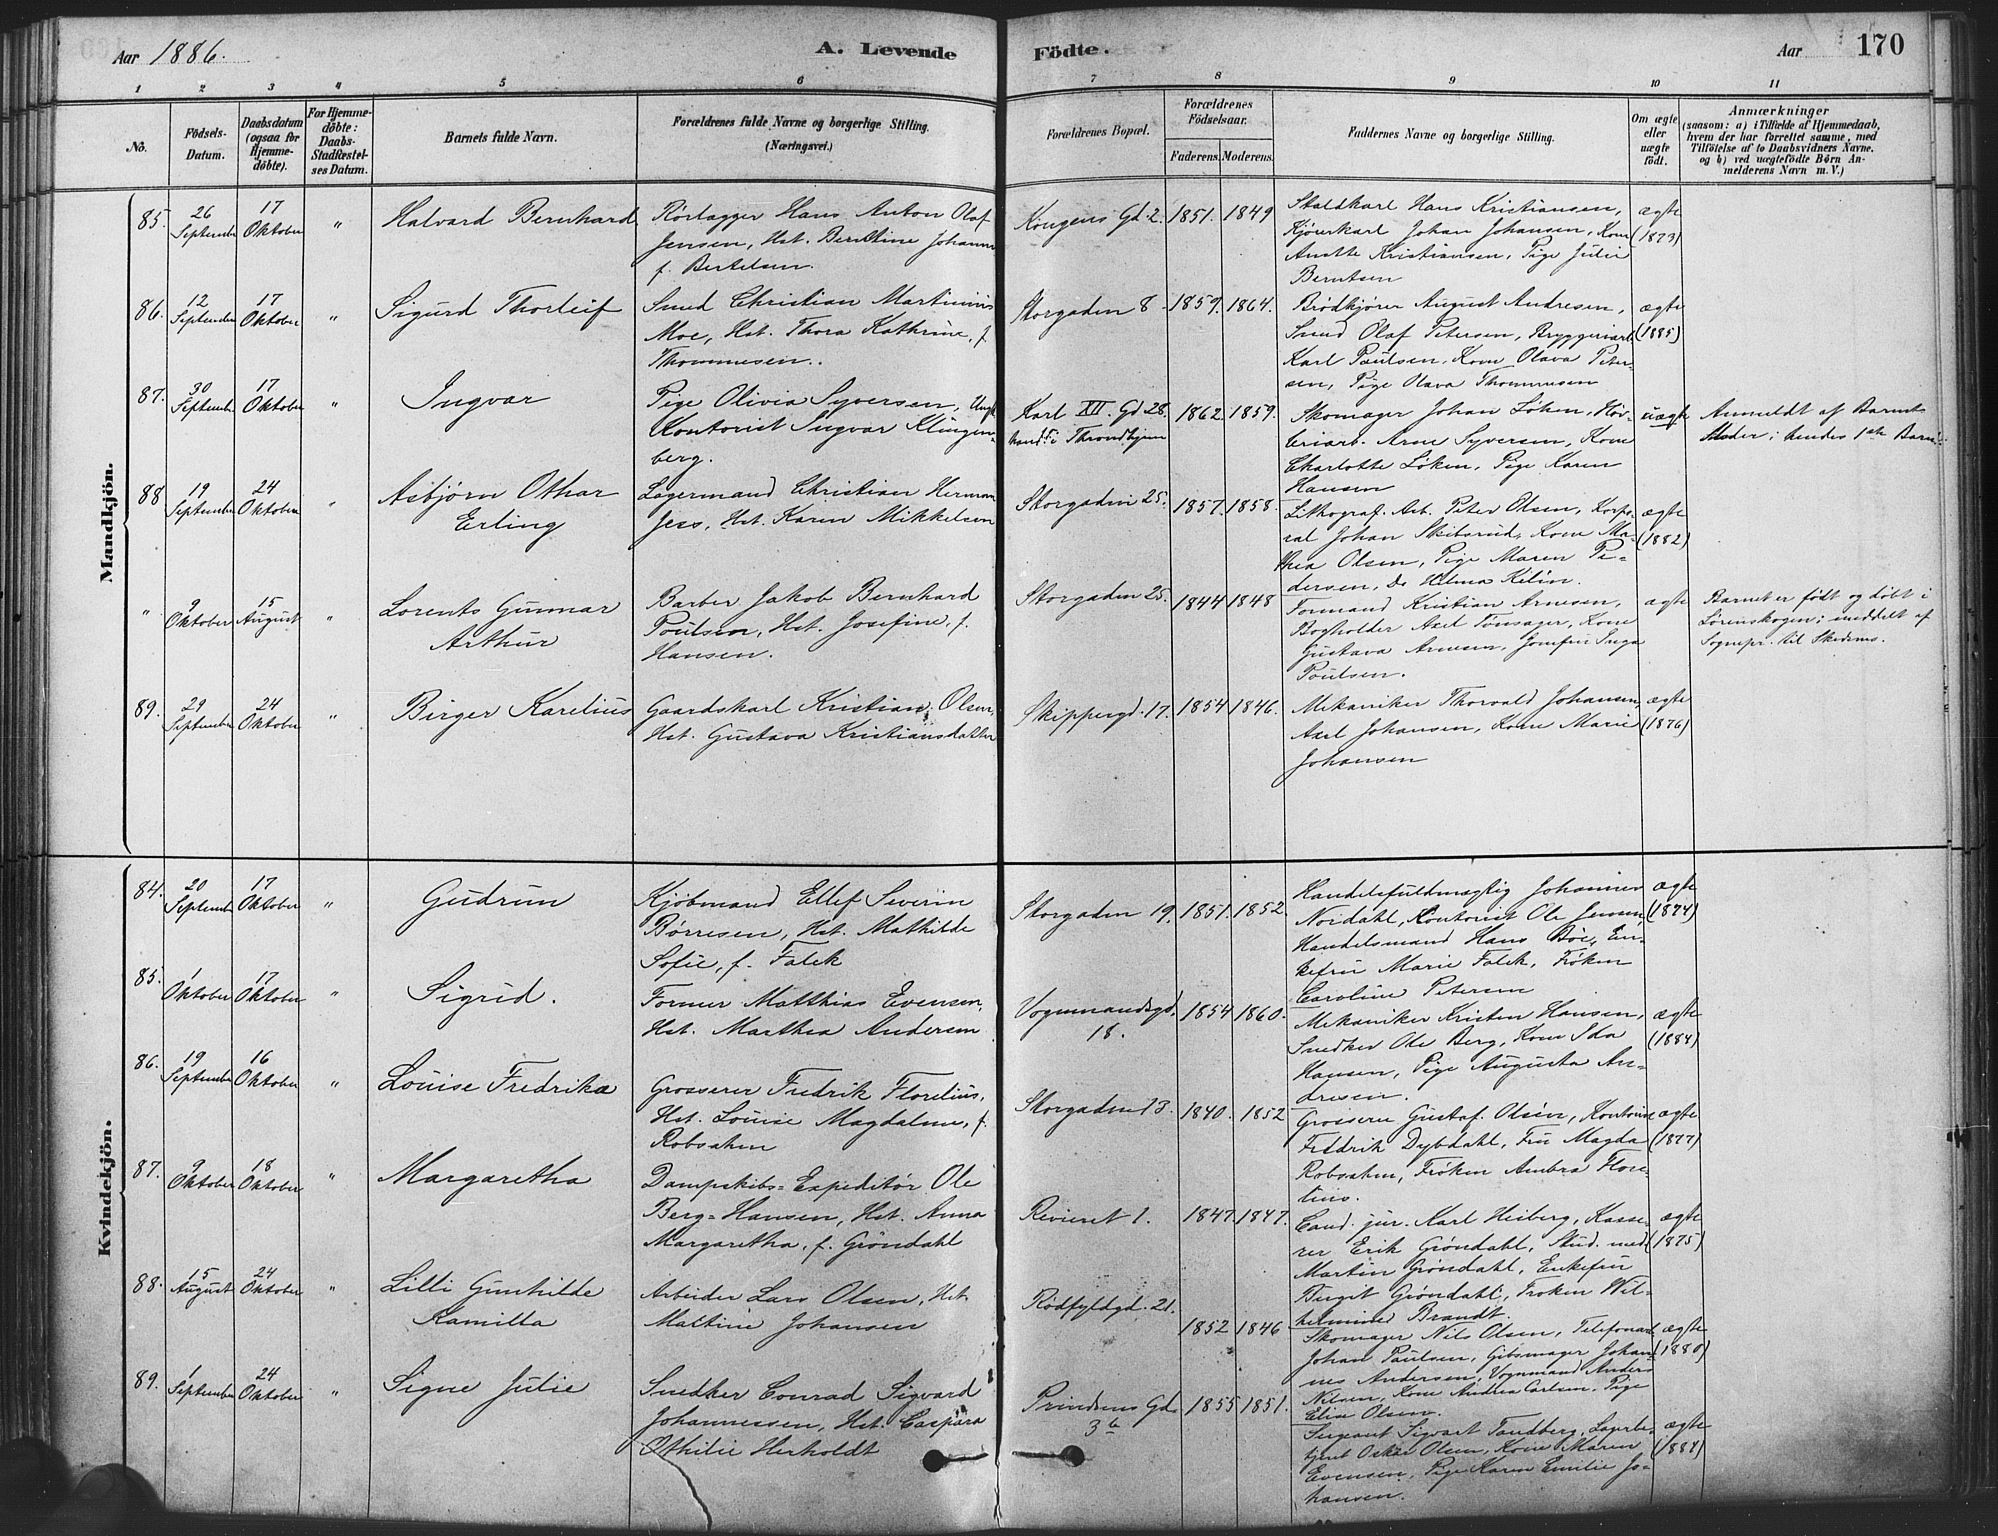 Aar 1886.
A. Levende
Födte.
Aar
170
1 2 3 4 5 6 7 8 9 10 11
No.
Födsels-
Datum.
Daabsdatum
(ogsaa for
Hjemme-
döbte).
For Hjemme-
döbte:
Daabs-
Stadfæstel-
ses Datum.
Barnets fulde Navn.
Forældrenes fulde Navne og borgerlige Stilling.
(Næringsvei.)
Forældrenes Bopæl.
Forældrenes
Födselsaar.
Faderens. Moderens.
Faddernes Navne og borgerlige Stilling.
Om ægte
eller
uægte
födt.
Anmærkninger
(saasom: a) i Tilfælde af Hjemmedaab,
hvem der har forrettet samme, med
Tilföielse af to Daabsvidners Navne,
og b) ved uægtefödte Börn An-
melderens Navn m. V.)
Mandkjön.
85. 26 September 17 Oktober " Halvard Bernhard
Rörlægger Hans Anton Olaf
Jensen, Hst. Berntine Johanne
f. Bertelsen.
Kongens Gd 2. 1851. 1849
Staldkarl Hans Kristiansen,
Kjørerkarl Johan Johansen, Kone
Anette Kristiansen, Pige Julie
Berntsen
ægte
(1873)
86. 12 September 17 Oktober " Sigurd Thorleif
Smed Christian Martinius
Moe, Hst. Thora Kathrine, f.
Thommesen.
Storgaden 8 1859. 1864.
Brödkjører August Andresen,
Smed Olaf Petersen, Bryggeriarb.
Karl Paulsen, Kone Olava Peter-
sen, Pige Olava Thommesen
ægte
(1885)
87. 30 September 17 Oktober " Ingvar
Pige Olivia Syversen, Ungk.
Kontorist Ingvar Klingen-
berg.
Karl XII. Gd 28.
Throndhjem
1862. 1859.
Skomager Johan Løken, Høv-
leriarb. Arne Syversen, Kone
Charlotte Løken, Pige Karen
Hansen
uægte
Anmeldt af Barnets
Moder; hendes 1ste Barn.
88 19 September 24 Oktober " Asbjörn Othar
Erling
Lagermand Christian Herman
Jess, Hst. Karen Mikkelsen
Storgaden 25. 1857. 1858.
Lithograf. Arb. Peter Olsen, Korpo-
ral Johan Skibsrud, Kone Ma-
thea Olsen, Pige Maren Pe-
dersen, Do Hilma Kilén.
ægte
(1882)
" 9 Oktober 15 August " Lorents Gunnar
Arthur
Barber Jakob Bernhard
Poulsen, Hst. Josefine, f.
Hansen.
Storgaden 25. 1844 1848
Formand Kristian Arnesen,
Bogholder Axel Tønsager, Kone
Gustava Arnesen, Jomfru Inga
Poulsen.
ægte
Barnet er født og døbt i
Lørenskogen; meddelt af
Sognepr. til Skedsmo.
89. 29 September 24 Oktober " Birger Karelius
Gaardskarl Kristian Olsen,
Hst. Gustava Kristiansdatter
Skippergd. 17. 1854 1846.
Mekaniker Thorvald Johansen
Axel Johansen, Kone Marie
Johansen
ægte
(1876)
Kvindekjön.
84. 20 September 17 Oktober " Gudrun
Kjöbmand Ellef Severin
Børresen, Hst. Mathilde
Sofie, f. Falck
Storgaden 19. 1851. 1852
Handelsfuldmægtig Johannes
Nordahl, Kontorist Ole Jensen,
Handelsmand Hans Bøe, En-
kefru Marie Falck, Frøken
Caroline Petersen
ægte
(1874)
85. 1 Oktober 17 Oktober " Sigrid.
Former Matthias Evensen,
Hst. Marthea Andersen
Vognmandsgd.
18.
1854 1860.
Mekaniker Kristen Hansen,
Snedker Ole Berg, Kone Ida
Hansen, Pige Augusta An-
dresen.
ægte
(1884)
86. 19 September 16 Oktober " Louise Fredrika
Grosserer Fredrik Florelius,
Hst. Louise Magdalene, f.
Robsahm
Storgaden 13. 1840. 1852
Grosserer Gustaf Olsén, Kontorist
Fredrik Dybdahl, Fru Magda
Robsahm, Frøken Ambra Flore-
lius.
ægte
(1877)
87. 9 Oktober 18 Oktober " Margaretha
Dampskibs-Expeditør Ole
Berg-Hansen, Hst. Anna
Margaretha, f. Gröndahl
Revieret 1. 1847. 1847.
Cand. jur. Karl Heiberg, Kasse-
rer Erik Grøndahl, Stud. med
Martin Grøndahl, Enkefru
Birgit Grøndahl, Frøken Wil-
helmine Brandt.
ægte
(1875)
88. 15 August 24 Oktober " Lilli Gunhilde
Kamilla
Arbeider Lars Olsen, Hst.
Mattine Johansen
Rödfyldgd. 21. 1852 1846
Skomager Nils Olsen, Telefonarb.
Johan Paulsen, Gibsmager Johan-
nes Andersen, Vognmand Anders
Nilsen, Kone Andrea Carlsen, Pige
Elise Olsen.
ægte
(1880)
89. 1 September 24 Oktober " Signe Julie
Snedker Conrad Sigvard
Johannessen, Hst. Caspara
Othilie Herholdt
Prindsens Gd.
3b
1855 1851.
Sergeant Sigvart Tandberg, Lagerbe-
tjent Oskar Olsen, Kone Maren
Evensen, Pige Karen Emilie Jo-
hansen.
ægte
(1884)